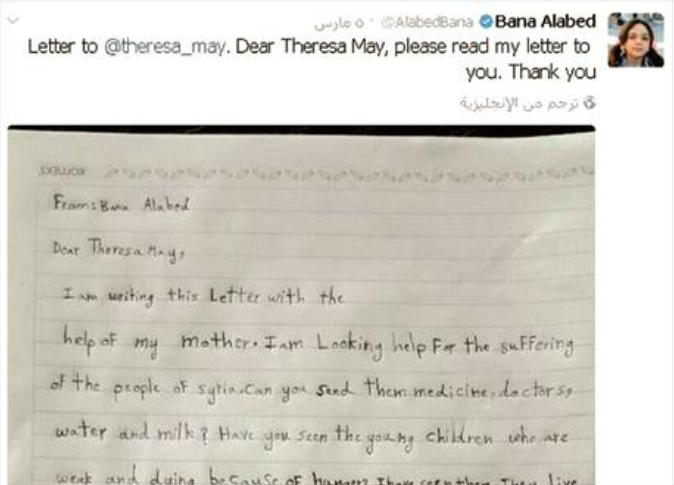 Bana Alabed @AlabedBana · ٥ مارس
Letter to @theresa_may. Dear Theresa May, please read my letter to
you. Thank you
ترجم من الإنجليزية
ROMEXS
From: Bana Alabed
Dear Theresa May,
I am writing this Letter with the
help of my mother. I am Looking help For the suffering
of the people of syria. Can you send them medicine, doctors,
water and milk? Have you seen the young children who are
weak and dying because of hunger? I have seen them. They live